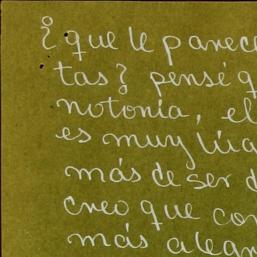 ¿que le parece
tas? pensé q
notonía, el
es muy lúa
más de ser d
creo que con
más alegr